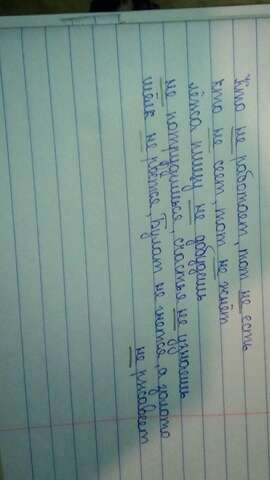 Кто не работает, тот не есть
Кто не сеет, тот не жнёт
Лёжа пищу не добудешь
не потрудишься, счастье не узнаешь
Шёлк не рвётся, Булат не гнётся, а золото
не ржавеет